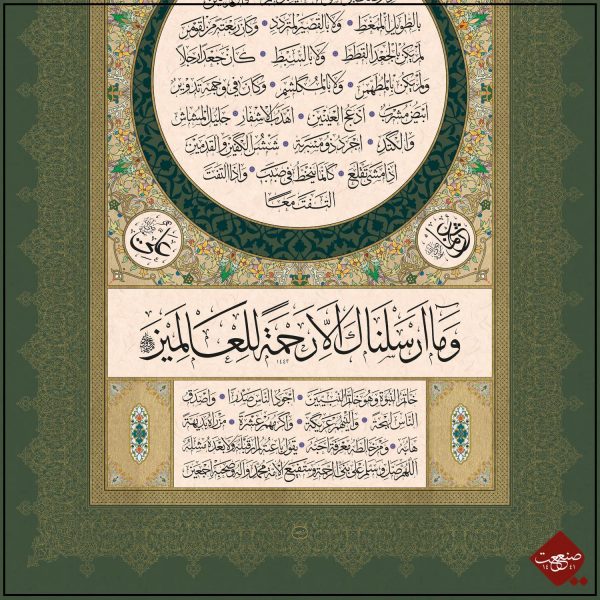 بالطويل الممغط • ولا بالقصير المتردد • وكان ربعة من القوم
لم يكن بالجعد القطط • ولا بالسبط • كان جعدا رجلا
ولم يكن بالمطهم • ولا بالمكلثم • وكان في وجهه تدوير
ابيض مشرب • ادعج العينين • اهدب الاشفار • جليل المشاش
والكتد • اجرد ذو مسربة • شثن الكفين والقدمين
اذا مشى تقلع • كأنما ينحط في صبب • واذا التفت
التفت معا
عثمان
علي
وما ارسلناك الا رحمة للعالمين
١٤٤٢
خاتم النبوة وهو خاتم النبيين • اجود الناس صدرا • واصدق
الناس لهجة • والينهم عريكة • واكرمهم عشرة • من رآه بديهة
هابه • ومن خالطه معرفة احبه • يقول ناعته لم ار قبله ولا بعده مثله
اللهم صل وسلم على نبي الرحمة وشفيع الامة محمد وآله وصحبه اجمعين
صنعت
١٤ ٤١